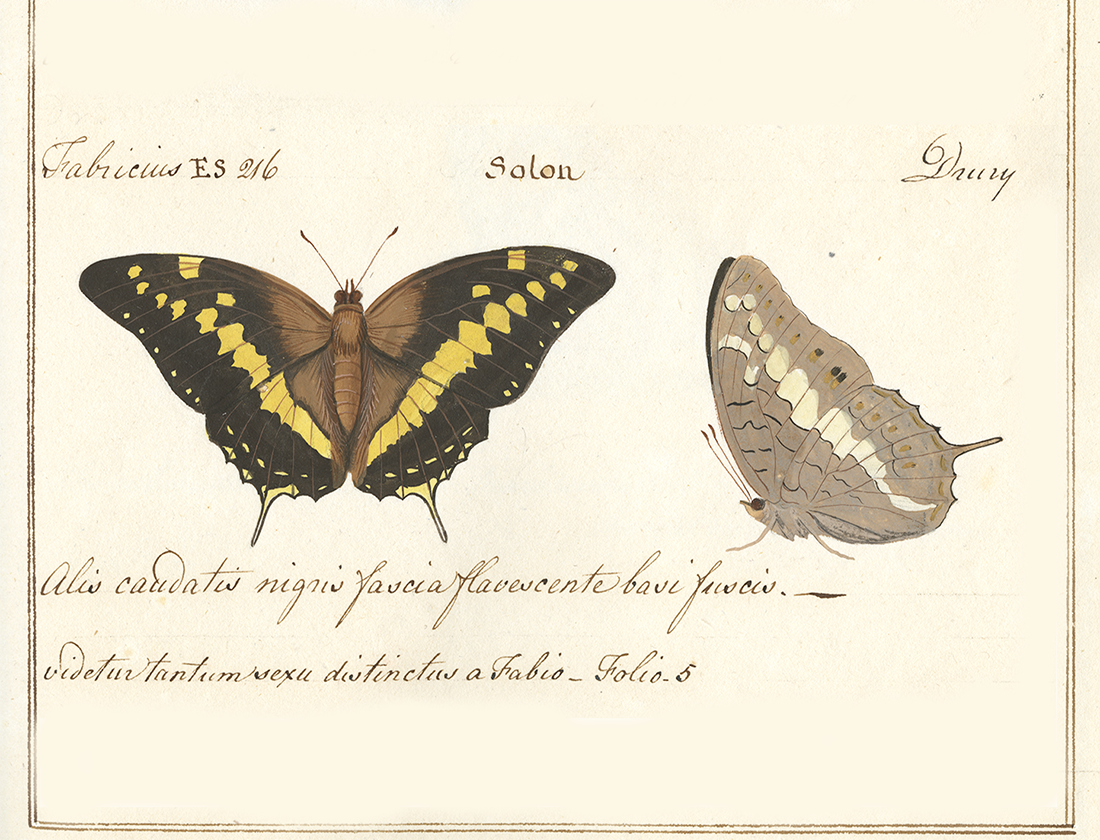 Fabricius ES 216 Solon Drury
Alis caudatis nigris fascia flavescente basi fuscis. —
videtur tantum sexu distinctus a Fabio – Folio. 5